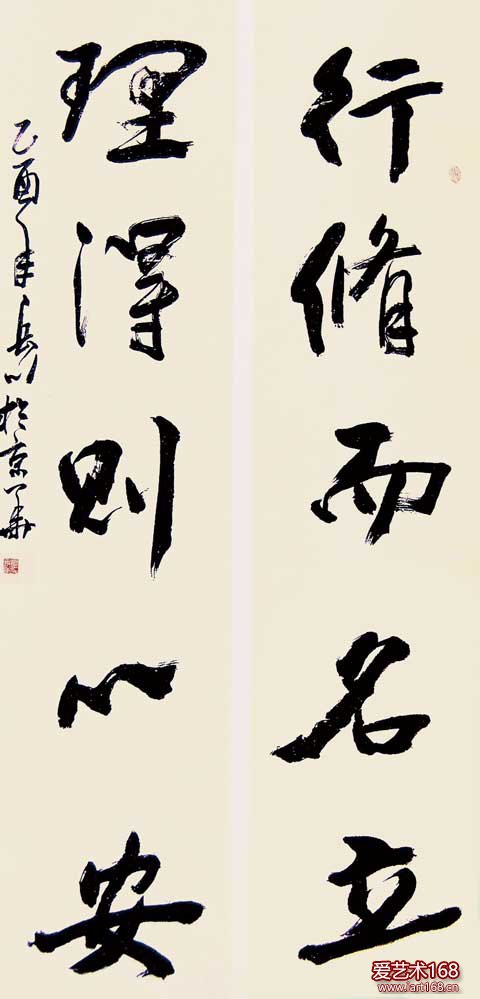 行脩而名立
理得則心安
乙酉年岳川於京華
爱艺术168
www.lart168.cn